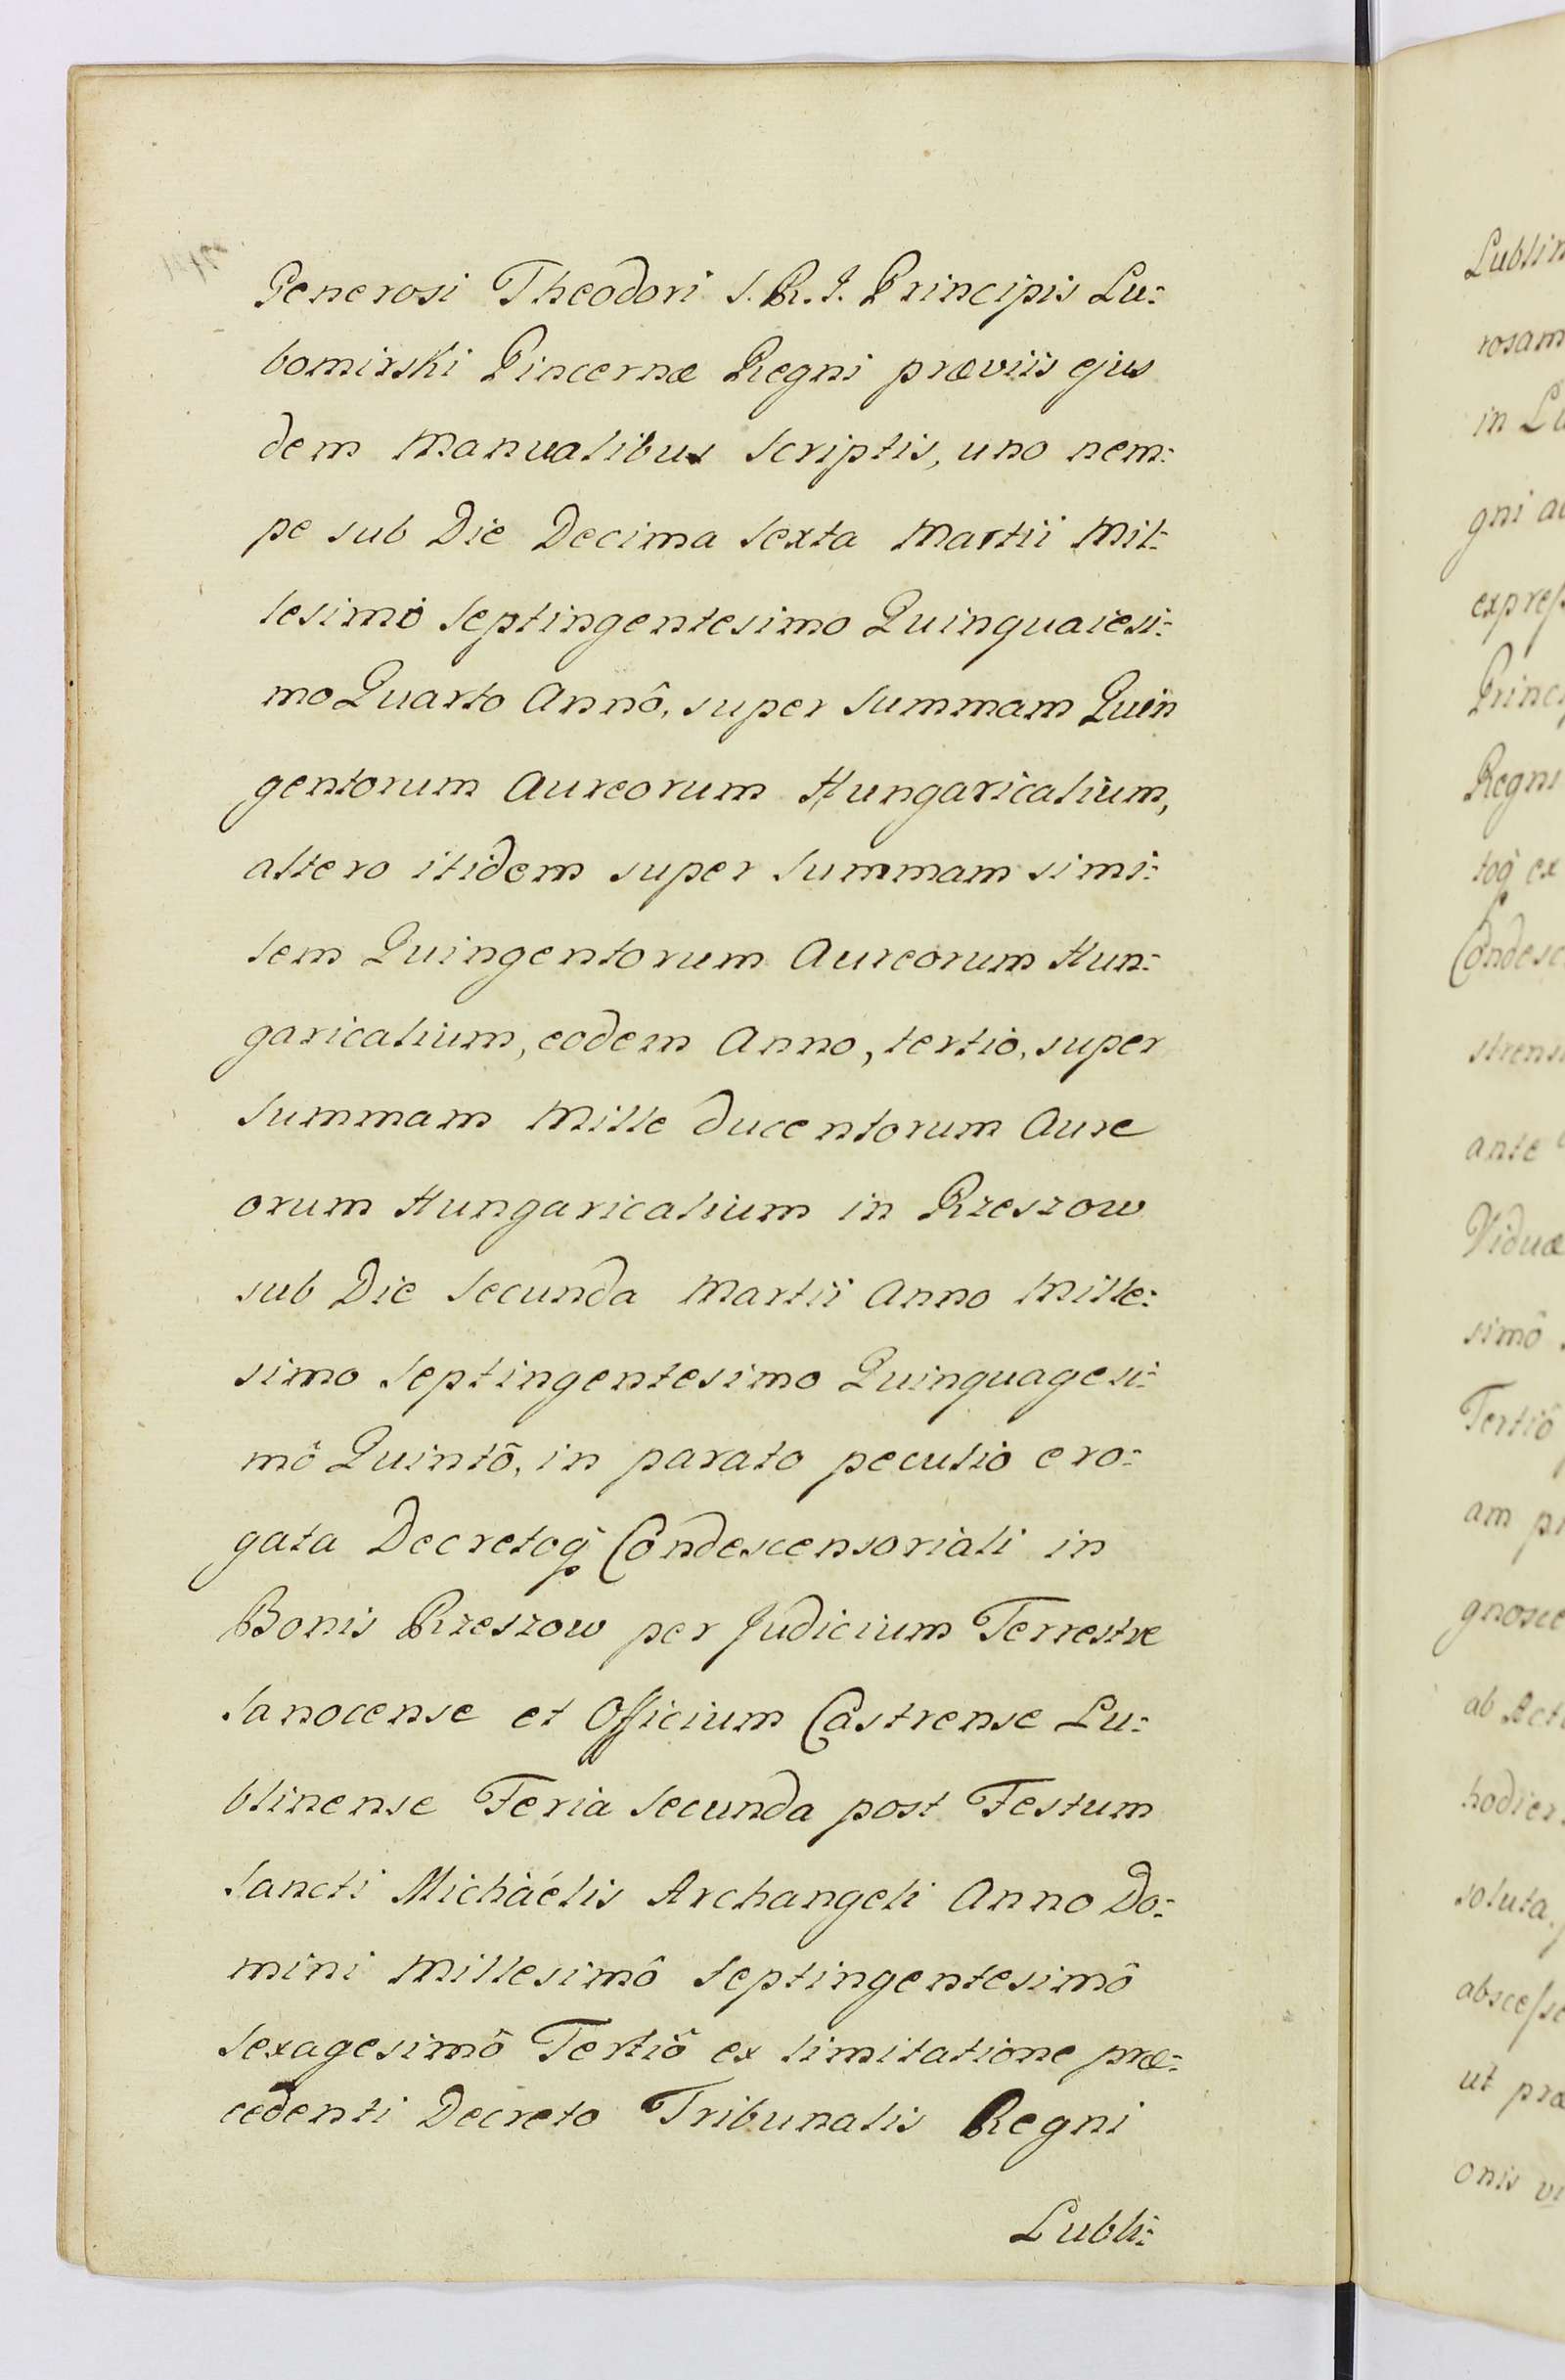 Generosi Theodori S. R. I. Principis Lu:
bomirski Pincernæ Regni præviis ejus
dem Manualibus Scriptis, uno nem:
pe sub Die Decima Sexta Martii Mil:
lesimo Septingentesimo Quinquaiesi:
mo Quarto Annô, super Summam Quin
gentorum Aureorum Hungaricalium,
altero itidem super Summam simi:
lem Quingentorum Aureorum Hun:
garicalium, eodem Anno, tertio, super
Summam Mille ducentorum Aure
orum Hungaricalium in Rzeszow
sub Die Secunda Martii Anno Mille:
simo Septingentesimo Quinquagesi:
mô Quintô, in parato peculio ero:
gata Decretoq Condescensoriali in
Bonis Rzeszow per Judicium Terrestre
Sanocense et Officium Castrense Lu:
blinense Feria Secunda post Festum
Sancti Michaélis Archangeli Anno Do:
mini Millesimô Septingentesimô
Sexagesimô Tertiô ex limitatione præ:
cedenti Decreto Tribunalis Regni
Lubli:
Lublin
rosam
in Lu
gni
Princi
Regni
toq ex
Condesc
strens
ante
Viduæ
simô
Tertiô
am
gnosce
ab Act
hodier
soluta
ut præ
onis